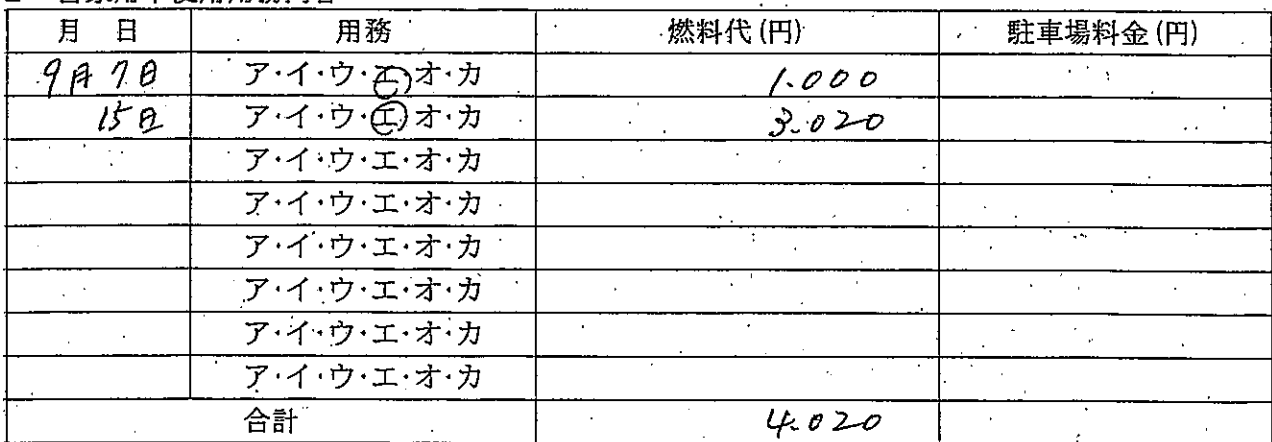 月 日 用務 燃料代(円) 駐車場料金(円)
9月7日 ア・イ・ウ・エ・オ・カ 1.000
15日 ア・イ・ウ・エ・オ・カ 3.020
ア・イ・ウ・エ・オ・カ
ア・イ・ウ・エ・オ・カ
ア・イ・ウ・エ・オ・カ
ア・イ・ウ・エ・オ・カ
ア・イ・ウ・エ・オ・カ
ア・イ・ウ・エ・オ・カ
合計 4.020